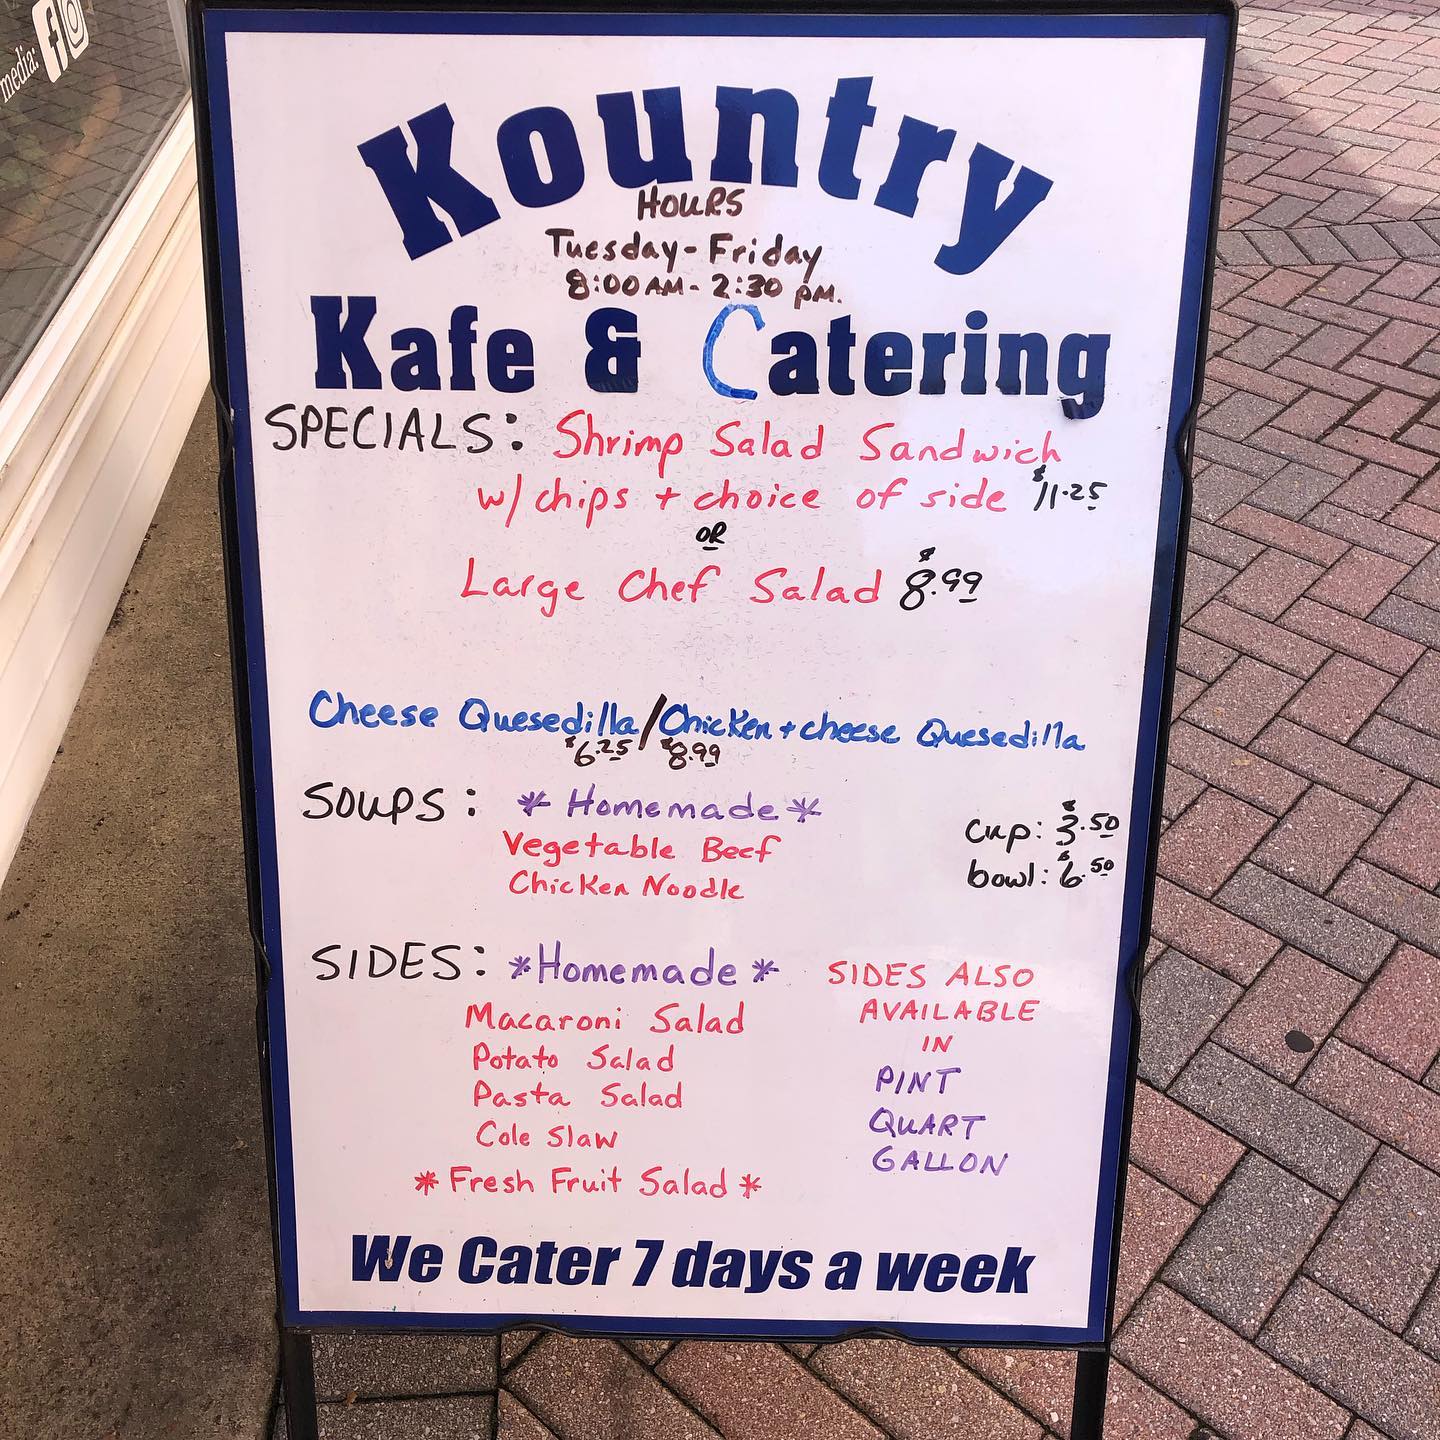 media:
Kountry
HOURS
Tuesday - Friday
8:00 AM - 2:30 PM.
Kafe & Catering
SPECIALS: Shrimp Salad Sandwich
w/ chips + choice of side $11.25
OR
Large Chef Salad $8.99
Cheese Quesedilla / Chicken + cheese Quesedilla
$6.25 $8.99
SOUPS: * Homemade *
Vegetable Beef
Chicken Noodle
cup: $3.50
bowl: $6.50
SIDES: * Homemade *
Macaroni Salad
Potato Salad
Pasta Salad
Cole Slaw
* Fresh Fruit Salad *
SIDES ALSO
AVAILABLE
IN
PINT
QUART
GALLON
We Cater 7 days a week